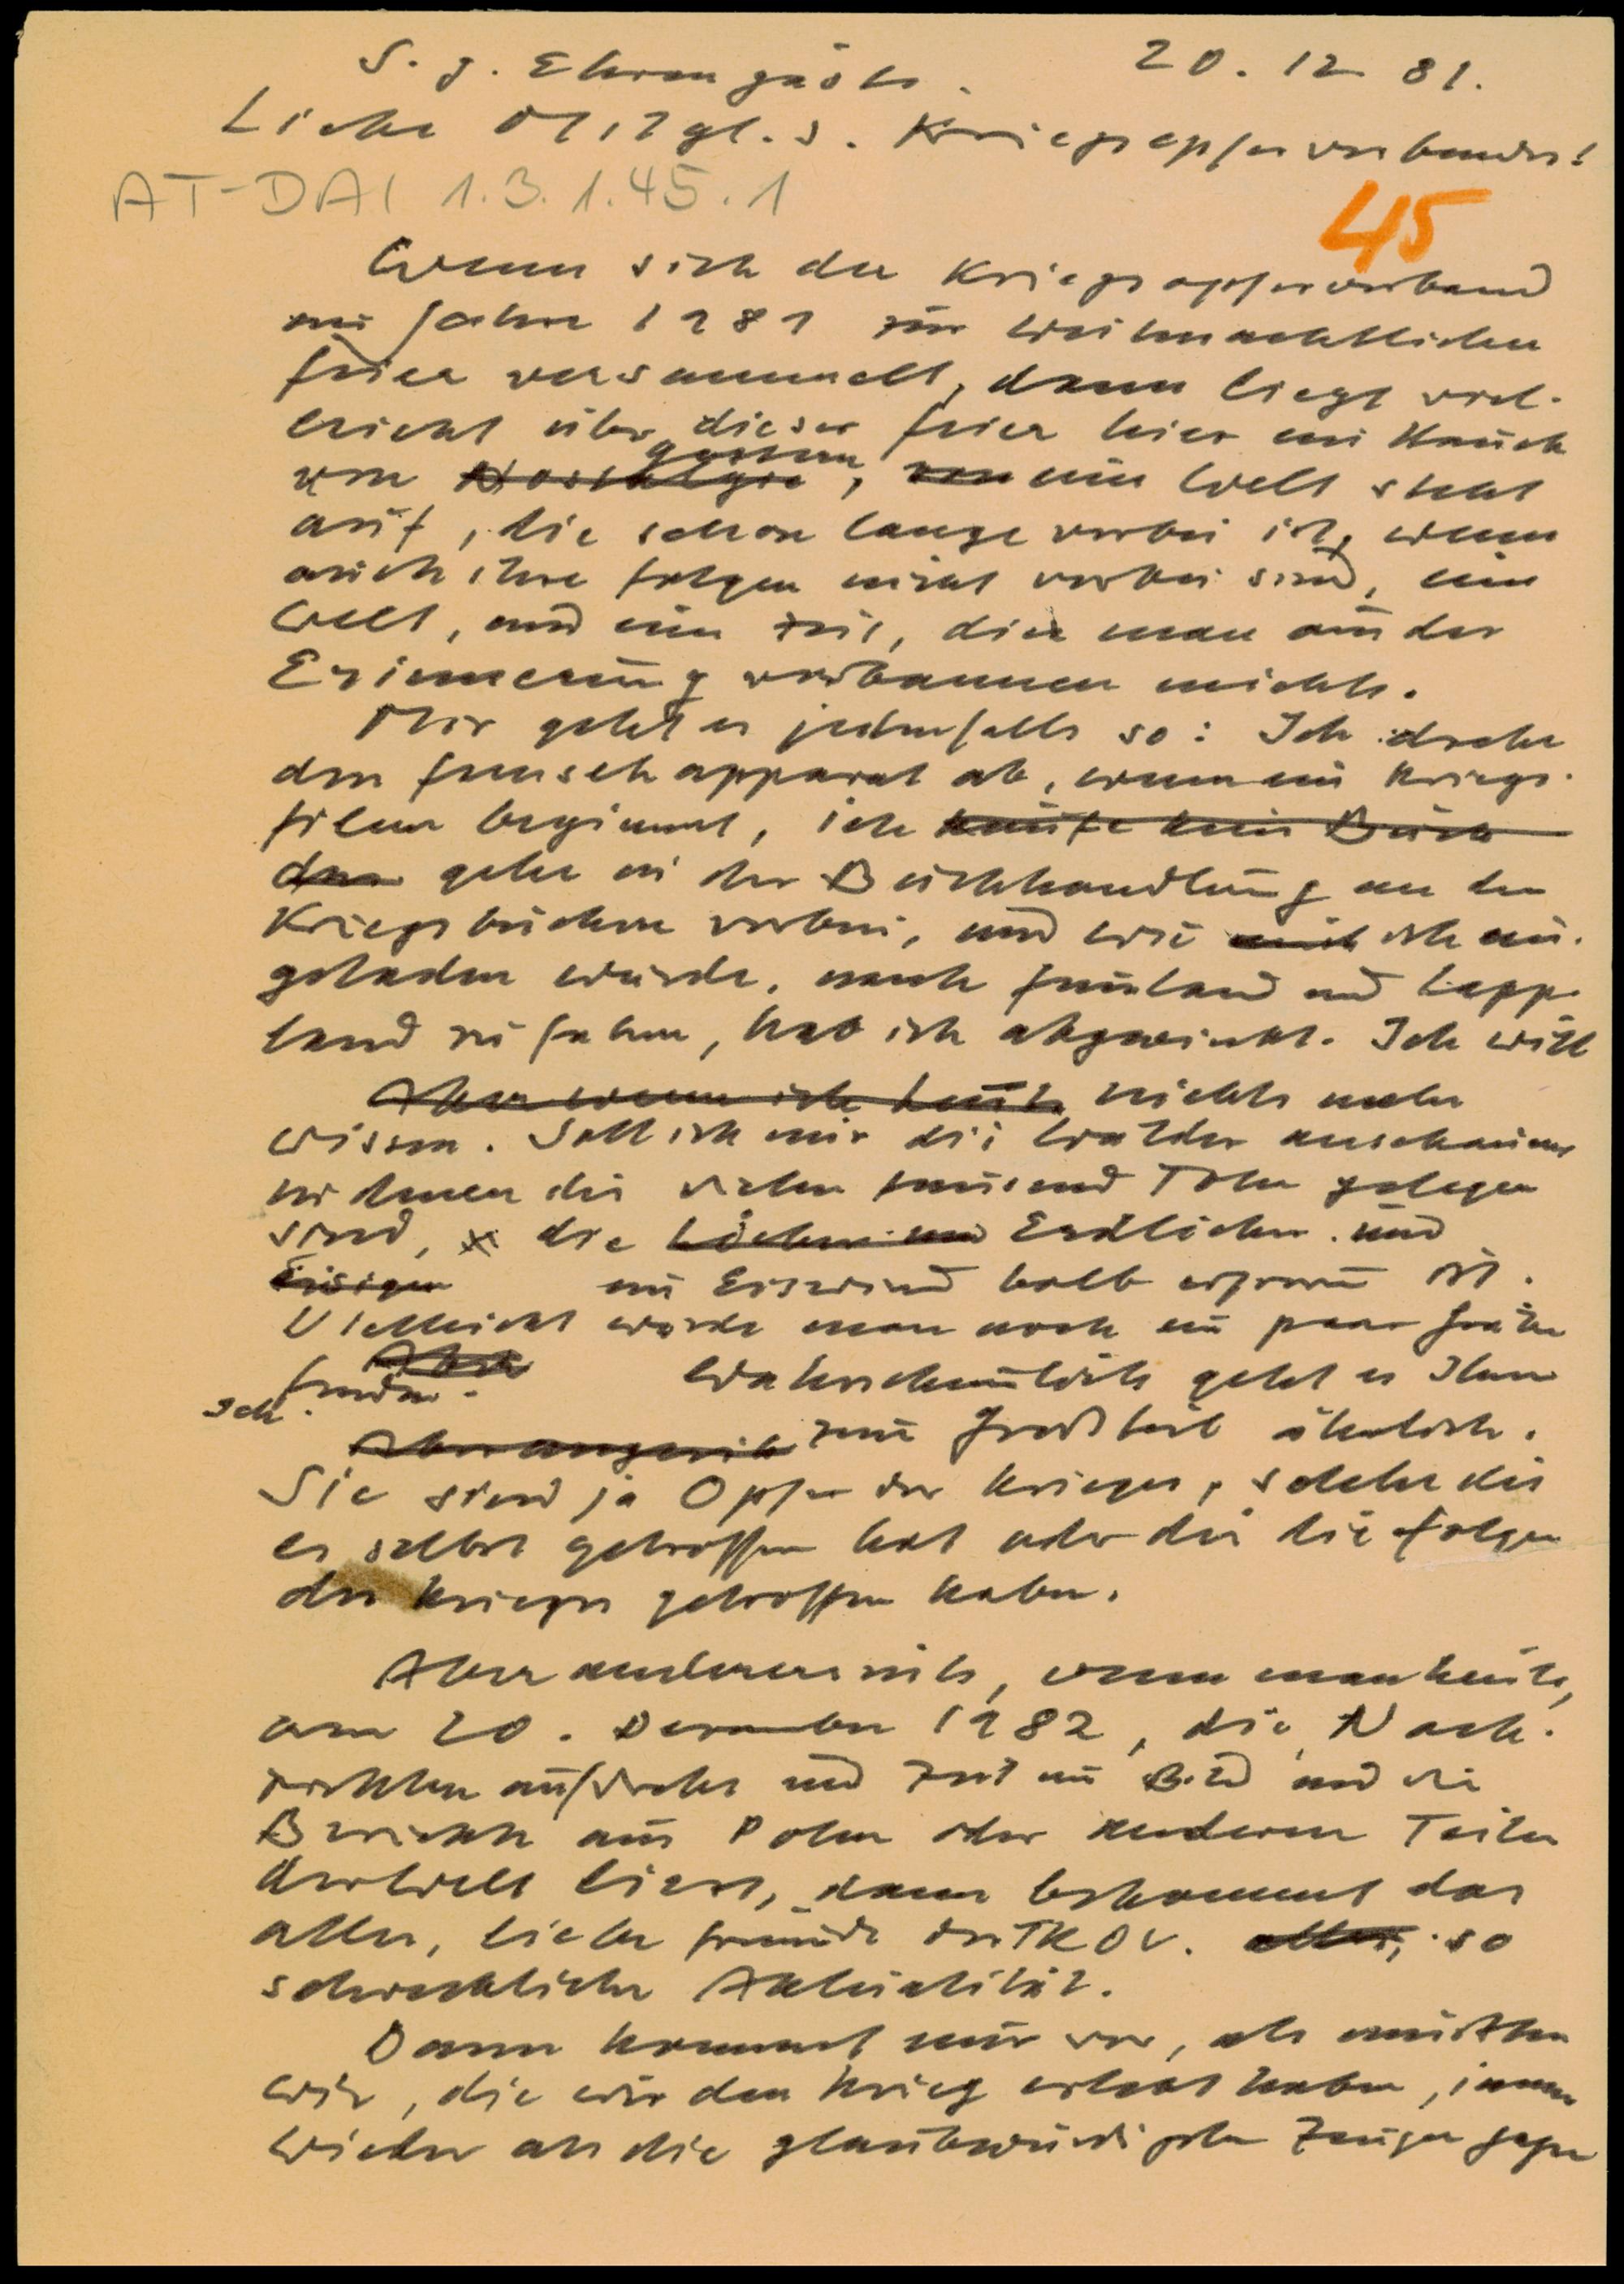 S. g. Ehrengäste. 20. 12 81.
Liebe Mitgl. d. Kriegsopferverbandes!
AT-DAI 1.3.1.45.1
45
Wenn sich der Kriegsopferverband
im Jahre 1981 zur weihnachtlichen
Feier versammelt, dann liegt viel-
leicht über dieser Feier hier ein Hauch
gestern
von Nostalgie, von eine Welt steht
auf, die schon lange vorbei ist, wenn
auch ihre Folgen nicht vorbei sind, eine
Welt, und eine Zeit, die man aus der
Erinnerung verbannen möchte.
Mir geht es jedenfalls so: Ich drehe
den Fernsehapparat ab, wenn ein Kriegs-
film beginnt, ich kaufe kein Buch
das gehe in der Buchhandlung an den
Kriegsbüchern vorbei, und wie ich ein-
geladen wurde, nach Finnland und Lapp-
land zu fahren, hab ich abgewinkt. Ich will
Aber wenn ich heute nichts mehr
wissen. Soll ich mir die Wälder anschauen
in denen die vielen tausend Toten gelegen
sind, die Löcher im Erdlöcher und
Eisigen im Eiswind halb erfroren ist.
Vielleicht würde man noch ein paar Gräber
finden. Aber Wahrscheinlich geht es Ihnen
Ich
zum Großteil ähnlich.
Sie sind ja Opfer des Krieges, solche die
er selbst getroffen hat oder die die Folgen
des Krieges getroffen haben.
Aber andererseits, wenn man heute,
am 20. Dezember 1982, die Nach-
richten aufdreht und Zeit im Bild und die
Berichte aus Polen oder anderen Teilen
der Welt liest, dann bekommt das
alles, liebe Freunde des TKOV. alles, so
schreckliche Aktualität.
Dann kommt mir vor, als müßten
wir, die wir den Krieg erlebt haben, immer
wieder als die glaubwürdigsten Zeugen gegen